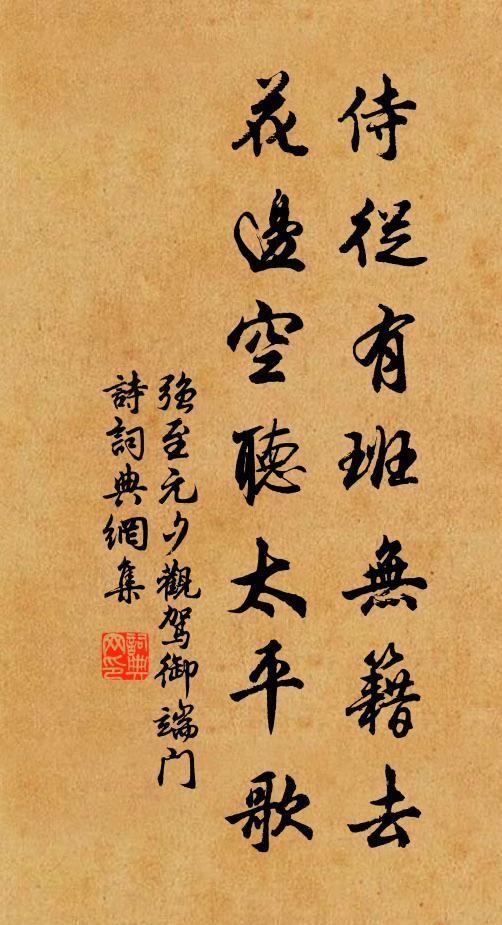 侍從有班無籍去
花邊空聽太平歌
强至元夕觀駕御端门
詩詞典網集
詞典网印